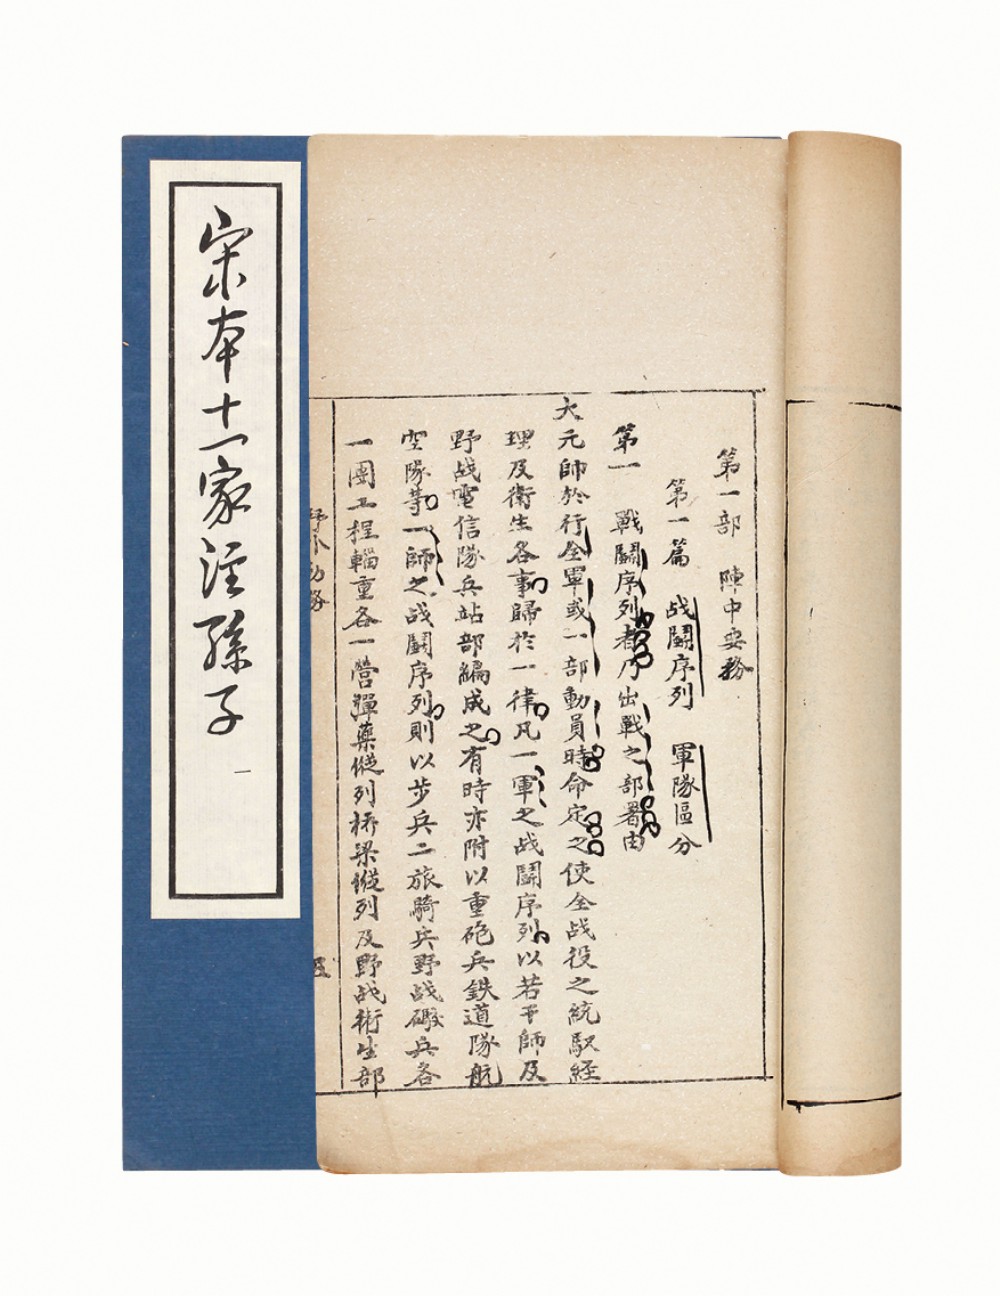 宋本十一家注孫子
一
第一部　陣中要務
第一篇　战鬪序列　軍隊區分
第一　戰鬪序列者乃出戰之部署由
大元師於行全軍或一部動員時命定之使全战役之統馭経
理及衛生各事歸於一律凡一軍之战鬪序列以若干師及
野战電信隊兵站部編成之有時亦附以重砲兵鉄道隊航
空隊等一師之战鬪序列則以步兵二旅騎兵野战礮兵各
一團工程輜重各一營彈藥縱列桥梁縱列及野战衛生部
野外勤務